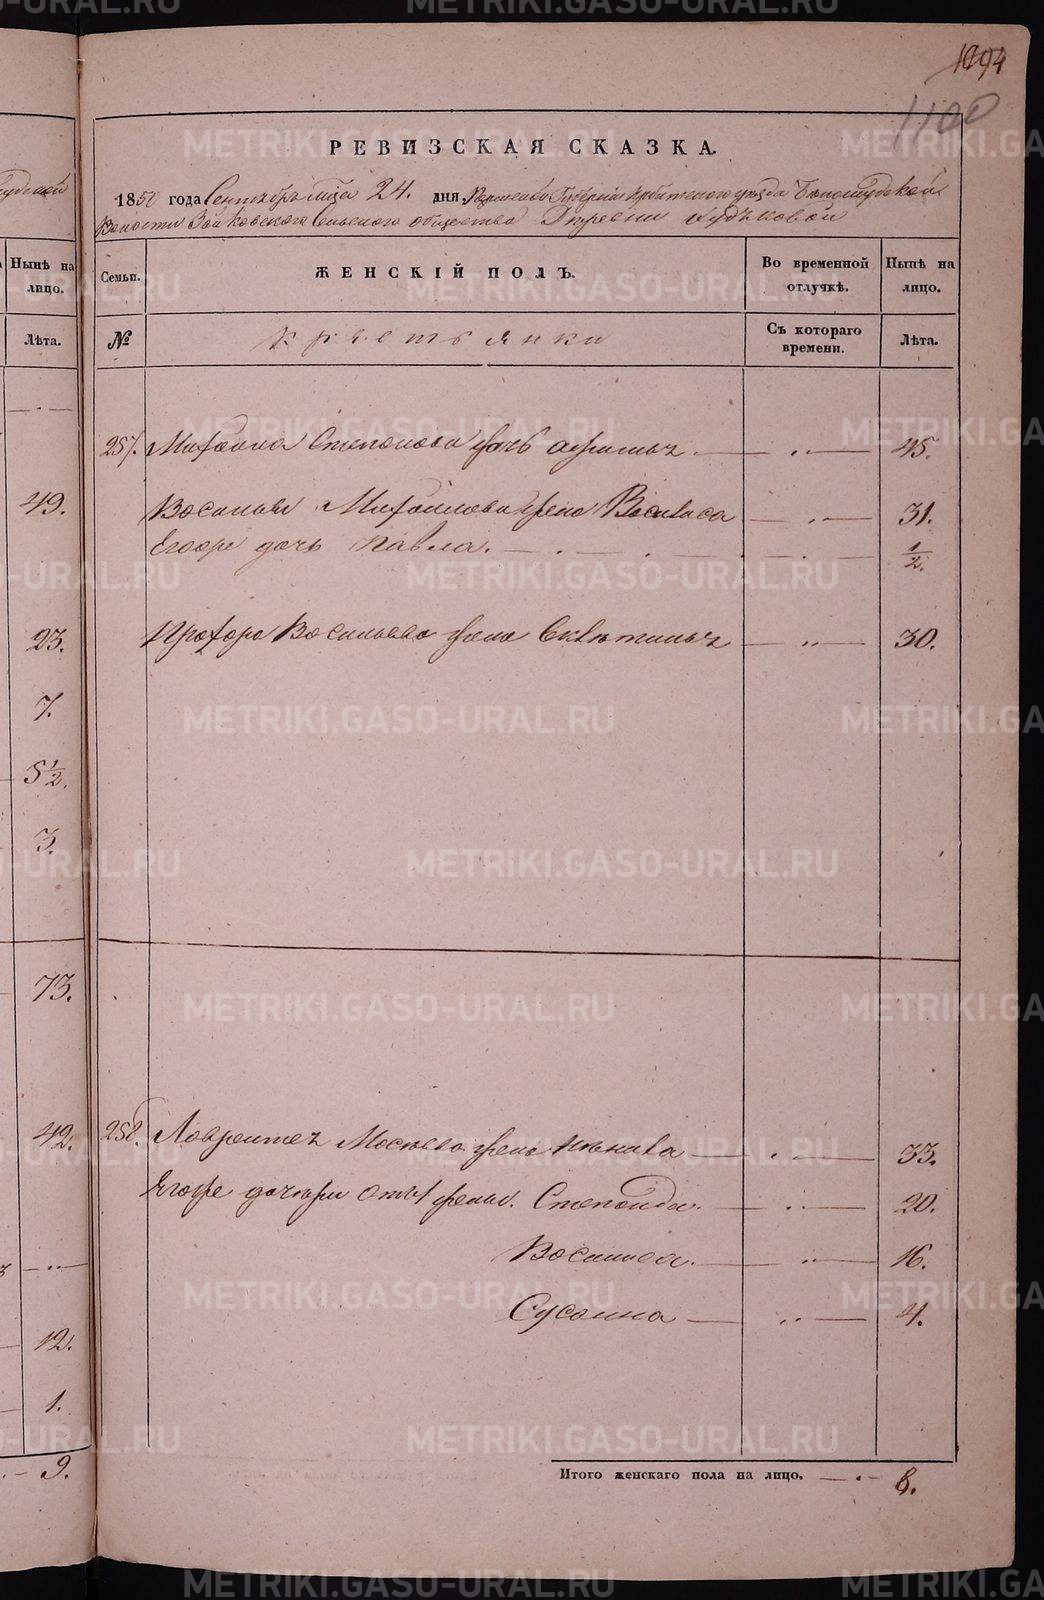 1094
1100
РЕВИЗСКАЯ СКАЗКА.
1850 года Сентября м-ца 24. дня Пермской Губернiи Ирбитского уѣзда Бѣлослудской
Волости Зайковского Сельского общества Деревни
Семьи. ЖЕНСКIЙ ПОЛЪ. Во временной отлучкѣ. Нынѣ на лицо.
№ Крестьянки Съ котораго времени. Лѣта.
257. Михаила Степанова дочь 45.
Василья Михайлова жена Василиса 31.
Его же дочь Павла. 1/2.
Прохора Васильева жена 30.
258. Лаврентья Мосѣева жена 33.
Его же дочери от 1 жены. Степанида. 20.
Василиса. 16.
Сусанна 4.
Итого женскаго пола на лицо. 8.
Нынѣ на лицо.
Лѣта.
49.
23.
7.
5 1/2.
3.
73.
42.
12.
1.
9.
METRIKI.GASO-URAL.RU